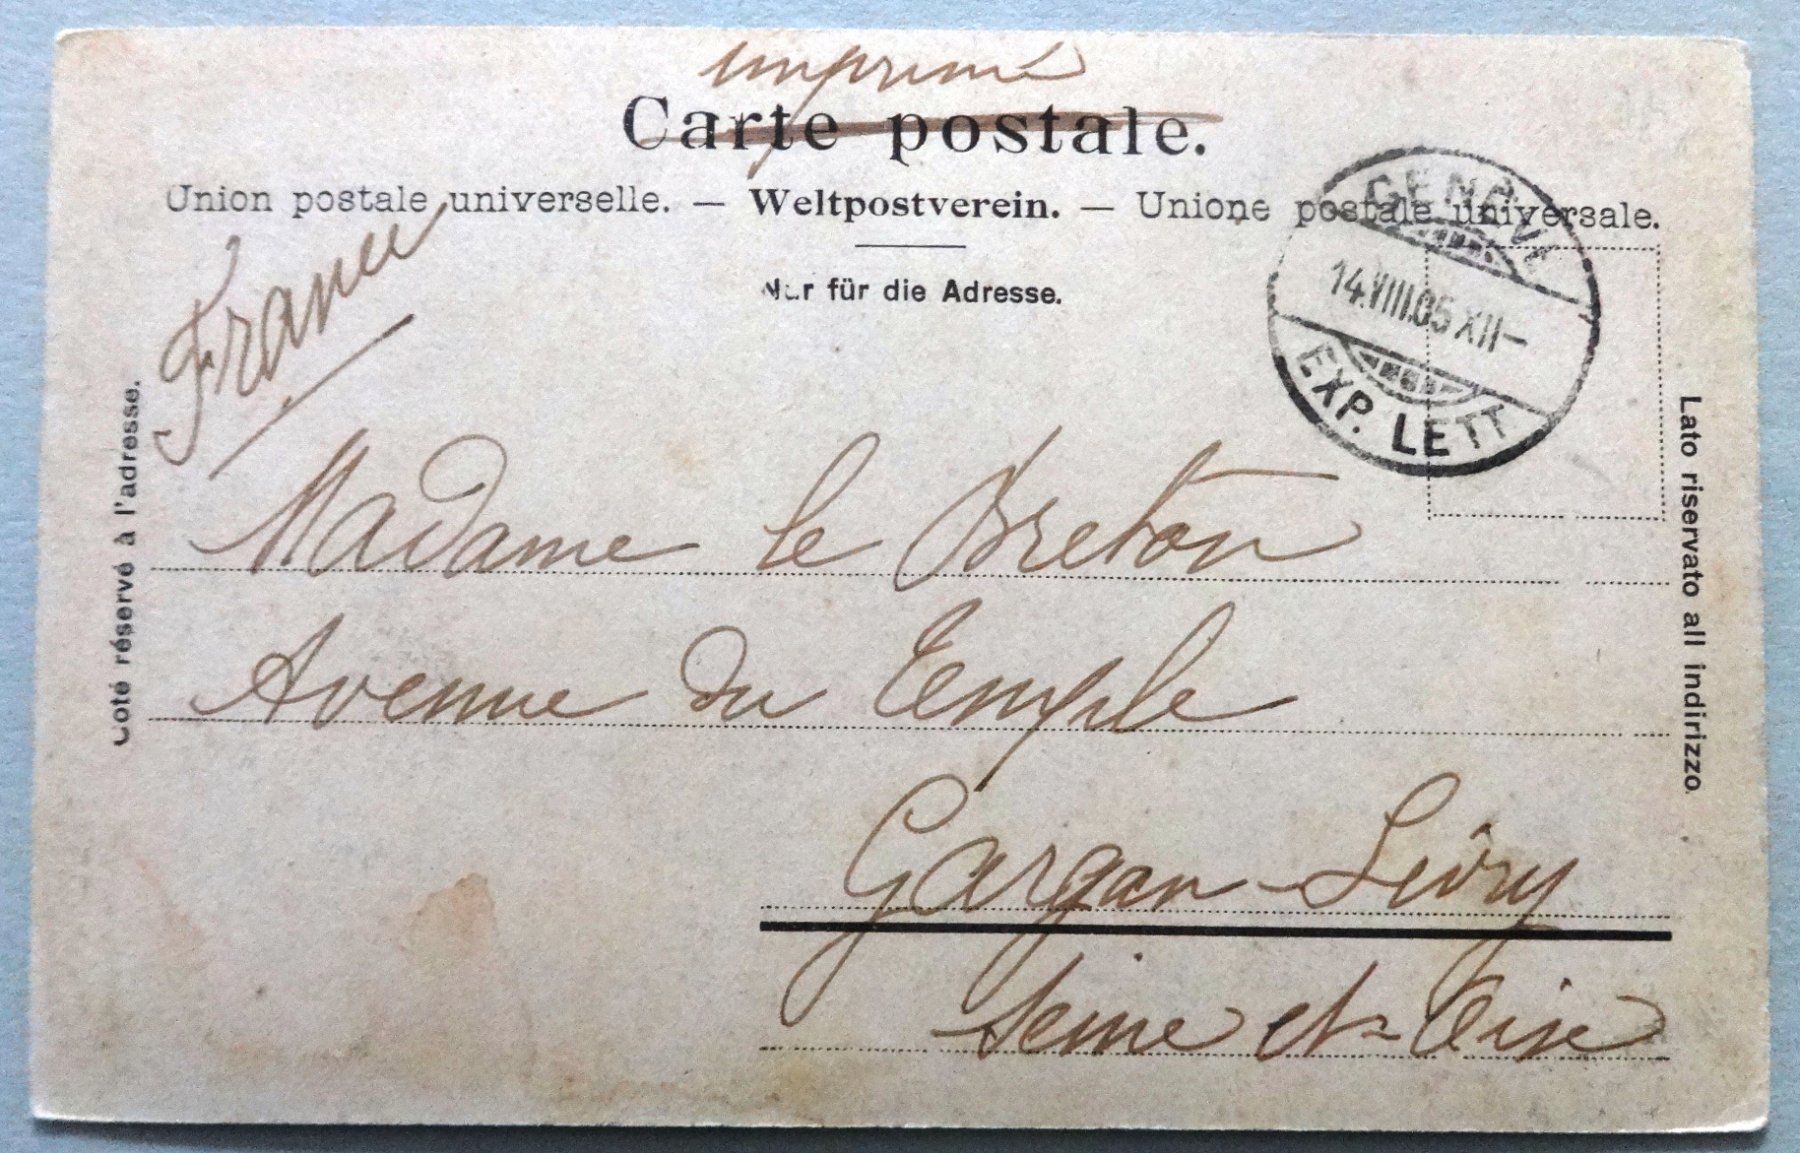 imprimé
Carte postale.
Union postale universelle. — Weltpostverein. — Unione postale universale.
Nur für die Adresse.
GENÈVE
14.VIII.05 XII—
EXP. LETT
France
Côté réservé à l'adresse.
Lato riservato all indirizzo.
Madame le Breton
Avenue du Temple
Gargan-Livry
Seine et-Oise